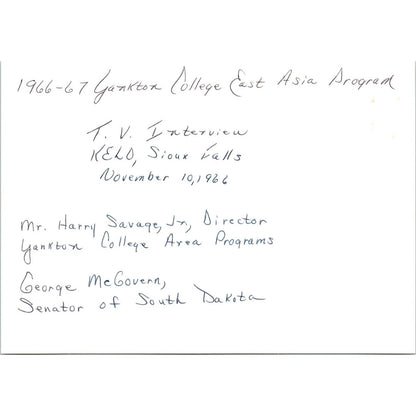 1966-67 Yankton College East Asia Program
T. V. Interview
KELO, Sioux Falls
November 10, 1966
Mr. Harry Savage, Jr, Director
Yankton College Area Programs
George McGovern,
Senator of South Dakota